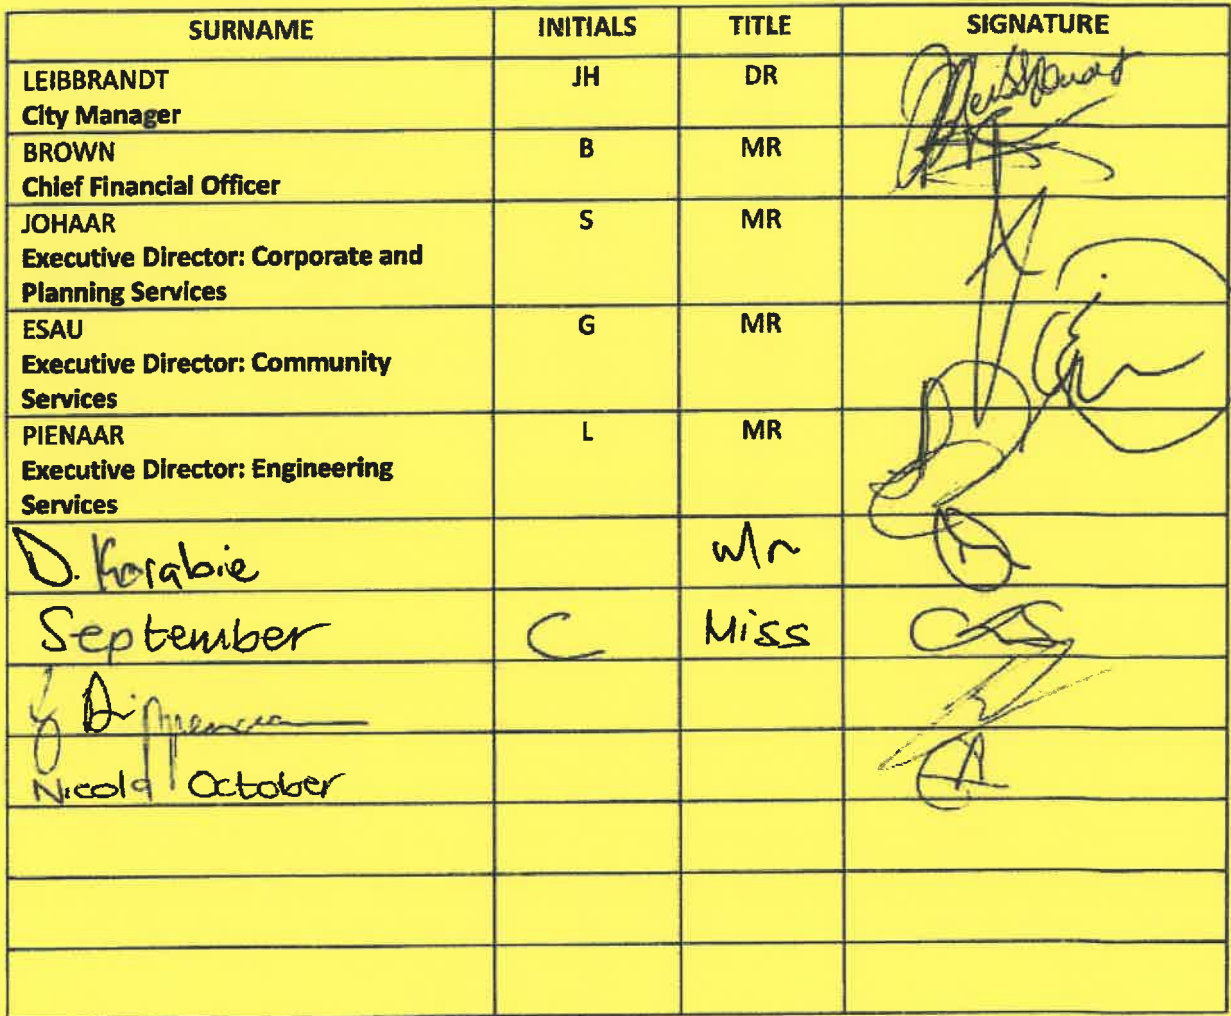 SURNAME INITIALS TITLE SIGNATURE
LEIBBRANDT JH DR
City Manager
BROWN B MR
Chief Financial Officer
JOHAAR S MR
Executive Director: Corporate and
Planning Services
ESAU G MR
Executive Director: Community
Services
PIENAAR L MR
Executive Director: Engineering
Services
D. Karabie Mr
September C Miss
Nicola October